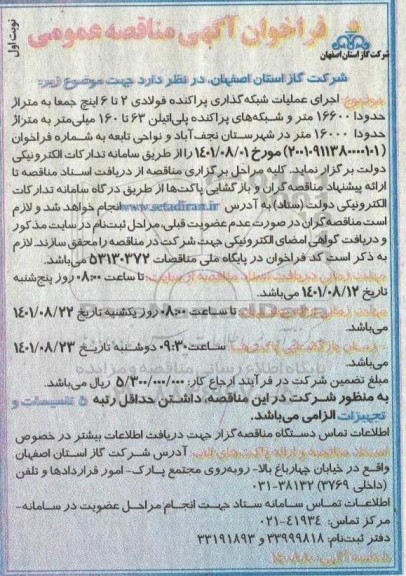 نوبت اول
فراخوان آگهی مناقصه عمومی
شرکت گاز استان اصفهان
شرکت گاز استان اصفهان، در نظر دارد جهت موضوع زیر:
موضوع: اجرای عملیات شبکه گذاری پراکنده فولادی ۲ تا ۶ اینچ جمعا به متراژ
حدودا ۱۶۶۰۰ متر و شبکه‌های پراکنده پلی‌اتیلن ۶۳ تا ۱۶۰ میلی متر به متراژ
حدودا ۱۶۰۰۰ متر در شهرستان نجف‌آباد و نواحی تابعه به شماره فراخوان
(۲۰۰۱۰۹۱۱۳۸۰۰۰۰۱۰۱) مورخ ۱۴۰۱/۰۸/۰۱ را از طریق سامانه تدارکات الکترونیکی
دولت برگزار نماید. کلیه مراحل برگزاری مناقصه از دریافت اسناد مناقصه تا
ارائه پیشنهاد مناقصه گران و بازگشایی پاکت‌ها از طریق درگاه سامانه تدارکات
الکترونیکی دولت (ستاد) به آدرس www.setadiran.ir انجام خواهد شد و لازم
است مناقصه‌گران در صورت عدم عضویت قبلی، مراحل ثبت‌نام در سایت مذکور
و دریافت گواهی امضای الکترونیکی جهت شرکت در مناقصه را محقق سازند. لازم
به ذکر است کد فراخوان در پایگاه ملی مناقصات ۵۳۱۳۰۳۷۲ می‌باشد.
مهلت زمانی دریافت اسناد مناقصه از سایت: تا ساعت ۰۸:۰۰ روز پنج‌شنبه
تاریخ ۱۴۰۱/۰۸/۱۲ می‌باشد.
مهلت زمانی تا ساعت ۰۸:۰۰ روز یکشنبه تاریخ ۱۴۰۱/۰۸/۲۲
می‌باشد.
زمان بازگشایی پاکت‌ها: ساعت ۰۹:۳۰ دوشنبه تاریخ ۱۴۰۱/۰۸/۲۳
می‌باشد.
پایگاه اطلاع رسانی مناقصه و مزایده
مبلغ تضمین شرکت در فرآیند ارجاع کار: ۵/۳۰۰/۰۰۰/۰۰۰ ریال می‌باشد.
به منظور شرکت در این مناقصه، داشتن حداقل رتبه ۵ تاسیسات و
تجهیزات الزامی می‌باشد.
اطلاعات تماس دستگاه مناقصه‌گزار جهت دریافت اطلاعات بیشتر در خصوص
اسناد مناقصه و ارائه پاکت‌های الف: آدرس شرکت گاز استان اصفهان
واقع در خیابان چهارباغ بالا- روبه‌روی مجتمع پارک- امور قراردادها و تلفن
(داخلی ۳۷۶۹) ۳۸۱۳۲-۰۳۱
اطلاعات تماس سامانه ستاد جهت انجام مراحل عضویت در سامانه-
مرکز تماس: ۴۱۹۳۴-۰۲۱
دفتر ثبت‌نام: ۳۳۹۹۹۸۱۸ و ۳۳۱۹۱۸۹۳